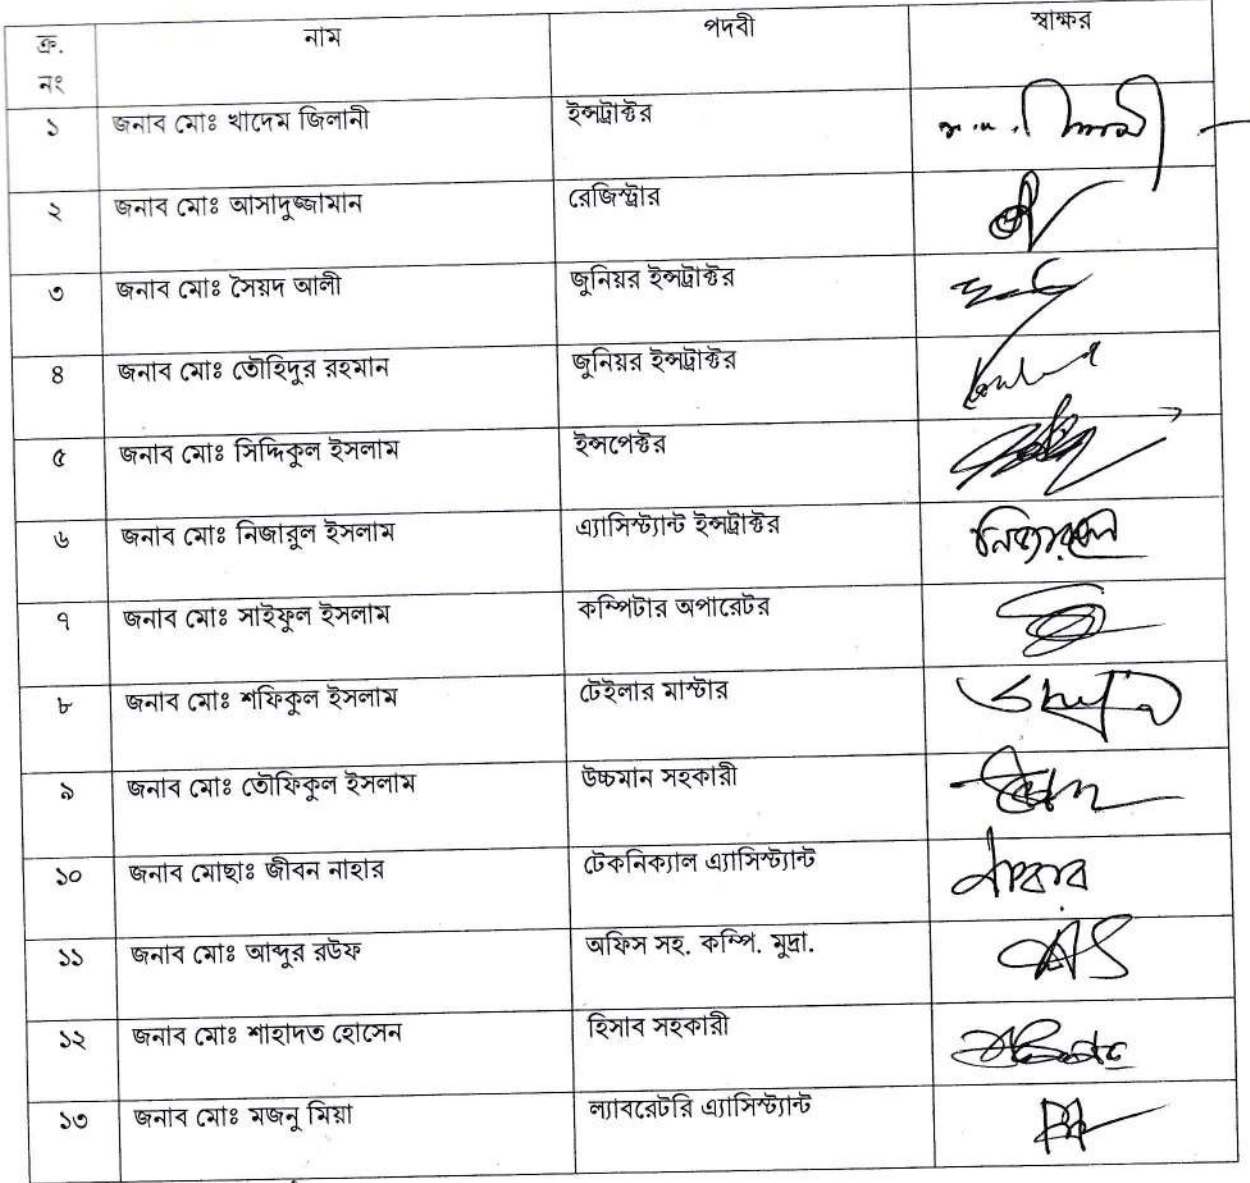 ক্র. নং নাম পদবী স্বাক্ষর
১ জনাব মোঃ খাদেম জিলানী ইন্সট্রাক্টর
২ জনাব মোঃ আসাদুজ্জামান রেজিস্ট্রার
৩ জনাব মোঃ সৈয়দ আলী জুনিয়র ইন্সট্রাক্টর
৪ জনাব মোঃ তৌহিদুর রহমান জুনিয়র ইন্সট্রাক্টর
৫ জনাব মোঃ সিদ্দিকুল ইসলাম ইন্সপেক্টর
৬ জনাব মোঃ নিজারুল ইসলাম এ্যাসিস্ট্যান্ট ইন্সট্রাক্টর
৭ জনাব মোঃ সাইফুল ইসলাম কম্পিটার অপারেটর
৮ জনাব মোঃ শফিকুল ইসলাম টেইলার মাস্টার
৯ জনাব মোঃ তৌফিকুল ইসলাম উচ্চমান সহকারী
১০ জনাব মোছাঃ জীবন নাহার টেকনিক্যাল এ্যাসিস্ট্যান্ট
১১ জনাব মোঃ আব্দুর রউফ অফিস সহ. কম্পি. মুদ্রা.
১২ জনাব মোঃ শাহাদত হোসেন হিসাব সহকারী
১৩ জনাব মোঃ মজনু মিয়া ল্যাবরেটরি এ্যাসিস্ট্যান্ট